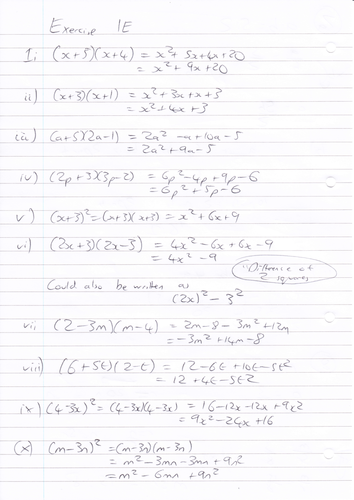 Exercise 1E
1i (x+5)(x+4) = x²+ 5x+4x+20
= x²+ 9x+20
ii) (x+3)(x+1) = x²+3x+x+3
= x²+4x+3
iii) (a+5)(2a-1) = 2a² -a+10a-5
= 2a²+9a-5
iv) (2p+3)(3p-2) = 6p²-4p+9p-6
= 6p²+5p-6
v) (x+3)²=(x+3)(x+3) = x²+6x+9
vi) (2x+3)(2x-3) = 4x²-6x+6x-9
= 4x²-9
"Difference of
2 squares"
Could also be written as
(2x)²-3²
vii (2-3m)(m-4) = 2m-8-3m²+12m
= -3m²+14m-8
viii) (6+5t)(2-t) = 12-6t+10t-5t²
= 12+4t-5t²
ix) (4-3x)² = (4-3x)(4-3x) = 16-12x-12x+9x²
= 9x²-24x+16
(x) (m-3n)² =(m-3n)(m-3n)
= m²-3mn-3mn+9n²
= m²-6mn+9n²